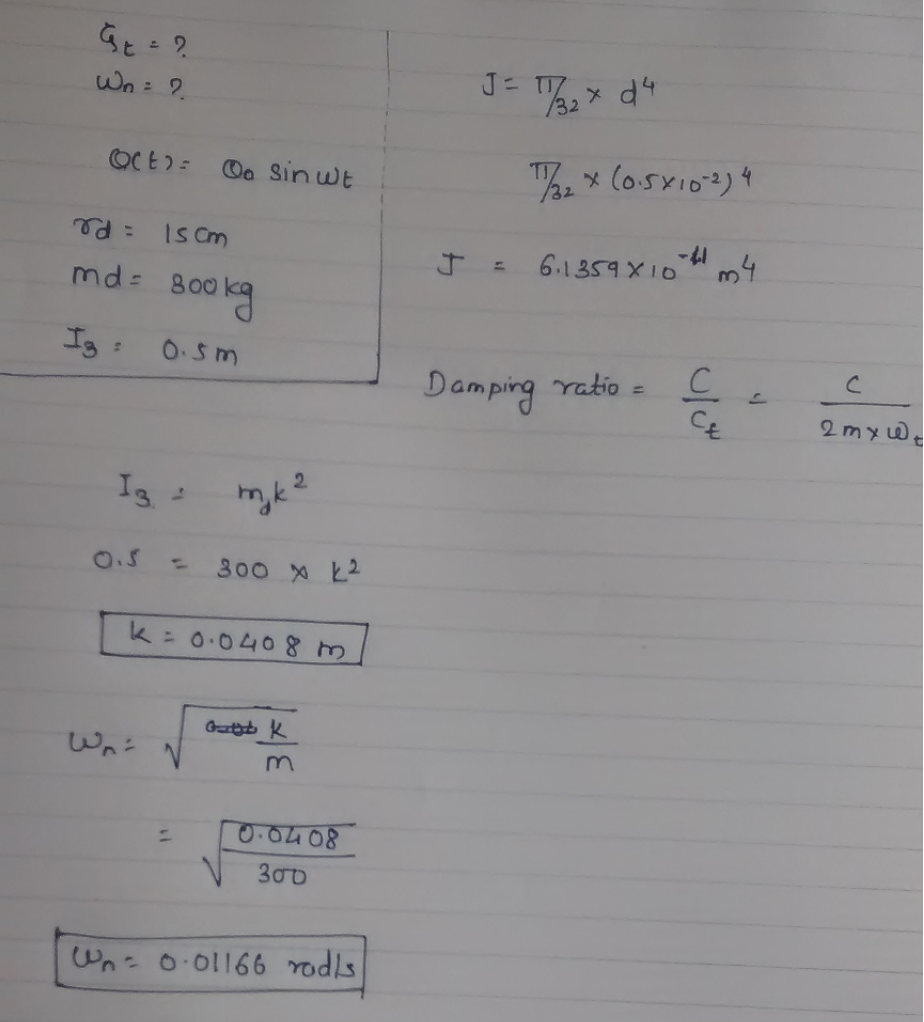 ζt = ?
ωn = ?
θ(t) = θ0 sin ωt
rd = 15cm
md = 300kg
I3 = 0.5m
J = π/32 × d⁴
π/32 × (0.5×10⁻²)⁴
J = 6.1359 × 10⁻¹¹ m⁴
Damping ratio = C/Ct = C/2m×ωt
I3 = mdk²
0.5 = 300 × k²
k = 0.0408 m
ωn = √k/m
= √0.0408/300
ωn = 0.01166 rad/s